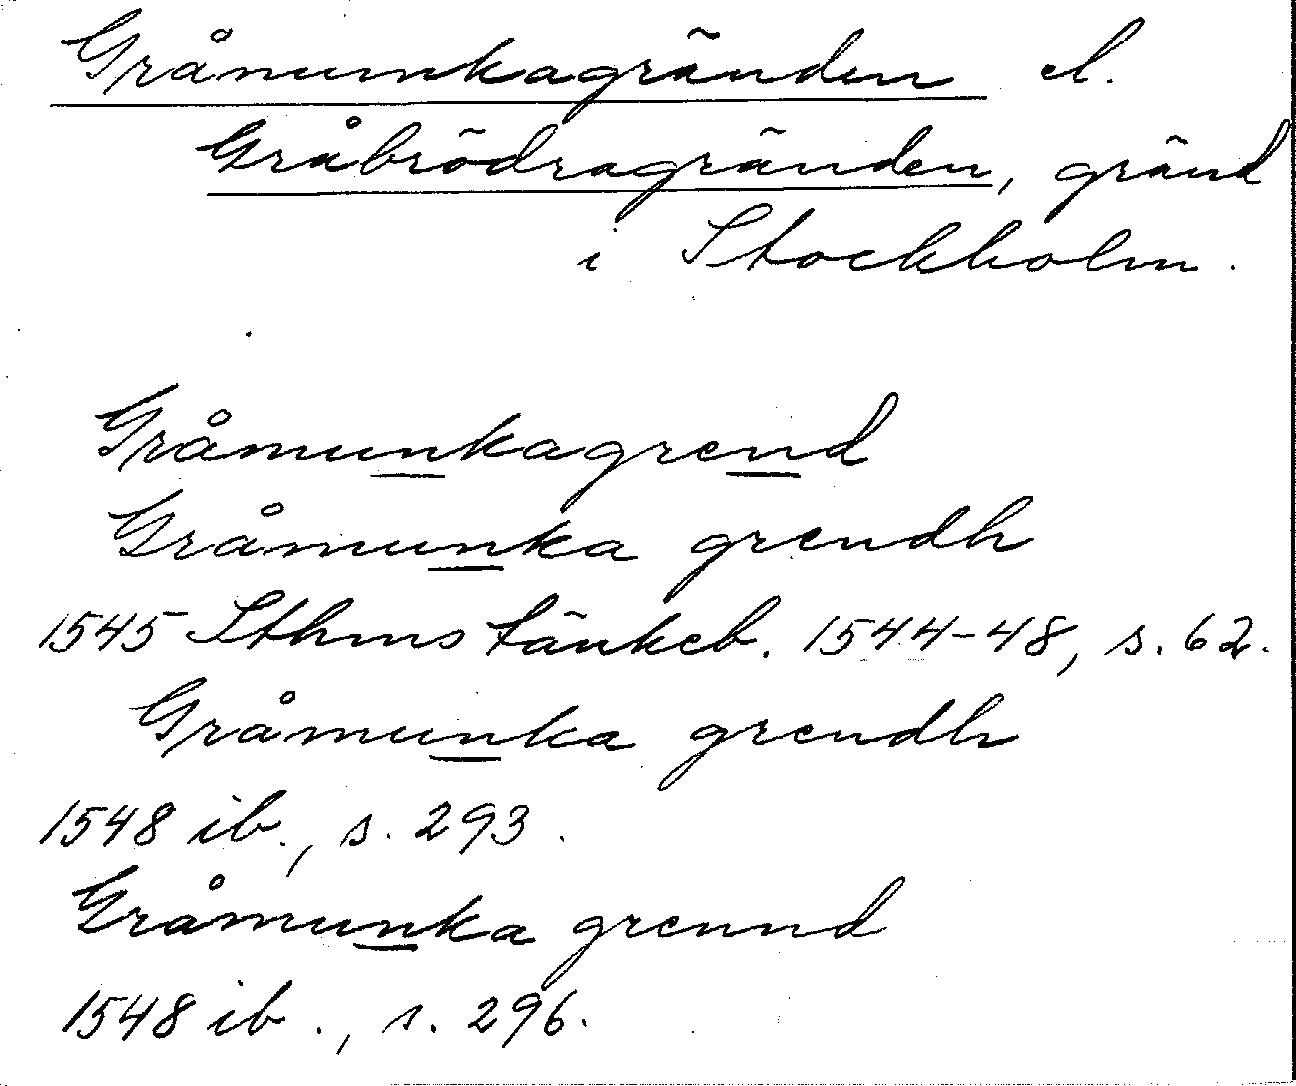 Gråmunkagränden el.
Gråbrödragränden, gränd
i Stockholm.
Gråmunkagrend
Gråmunka grendh
1545 Sthms tänkeb. 1544-48, s. 62.
Gråmunka grendh
1548 ib., s. 293.
Gråmunka grennd
1548 ib., s. 296.